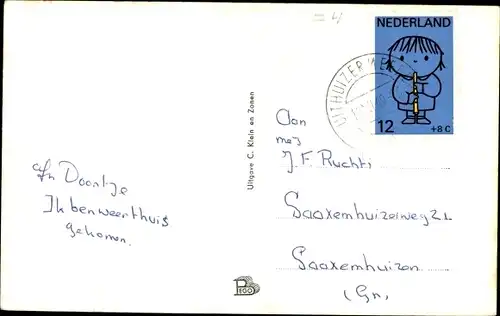 NEDERLAND
12
+8 C
UITHUIZER
Uitgave C. Klein en Zonen
Aan
mej
J F Ruchti
Saaxemhuizerweg 21
Saaxemhuizen
(Gr.)
Doortje
Ik ben weer thuis
gekomen.
BEGO